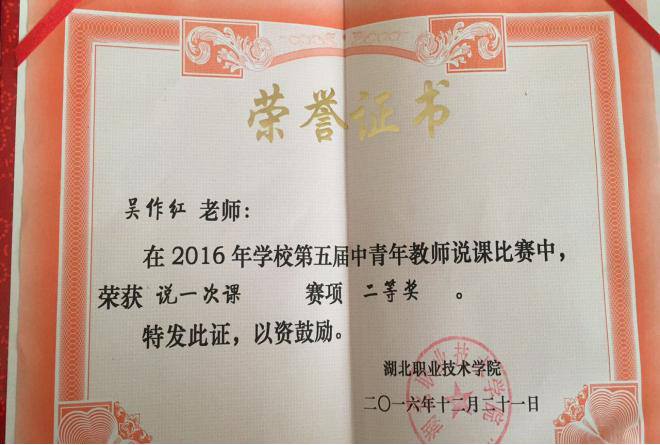 荣誉证书
吴作红 老师:
在 2016 年学校第五届中青年教师说课比赛中,
荣获 说一次课 赛项 二等奖 。
特发此证,以资鼓励。
湖北职业技术学院
二〇一六年十二月二十一日